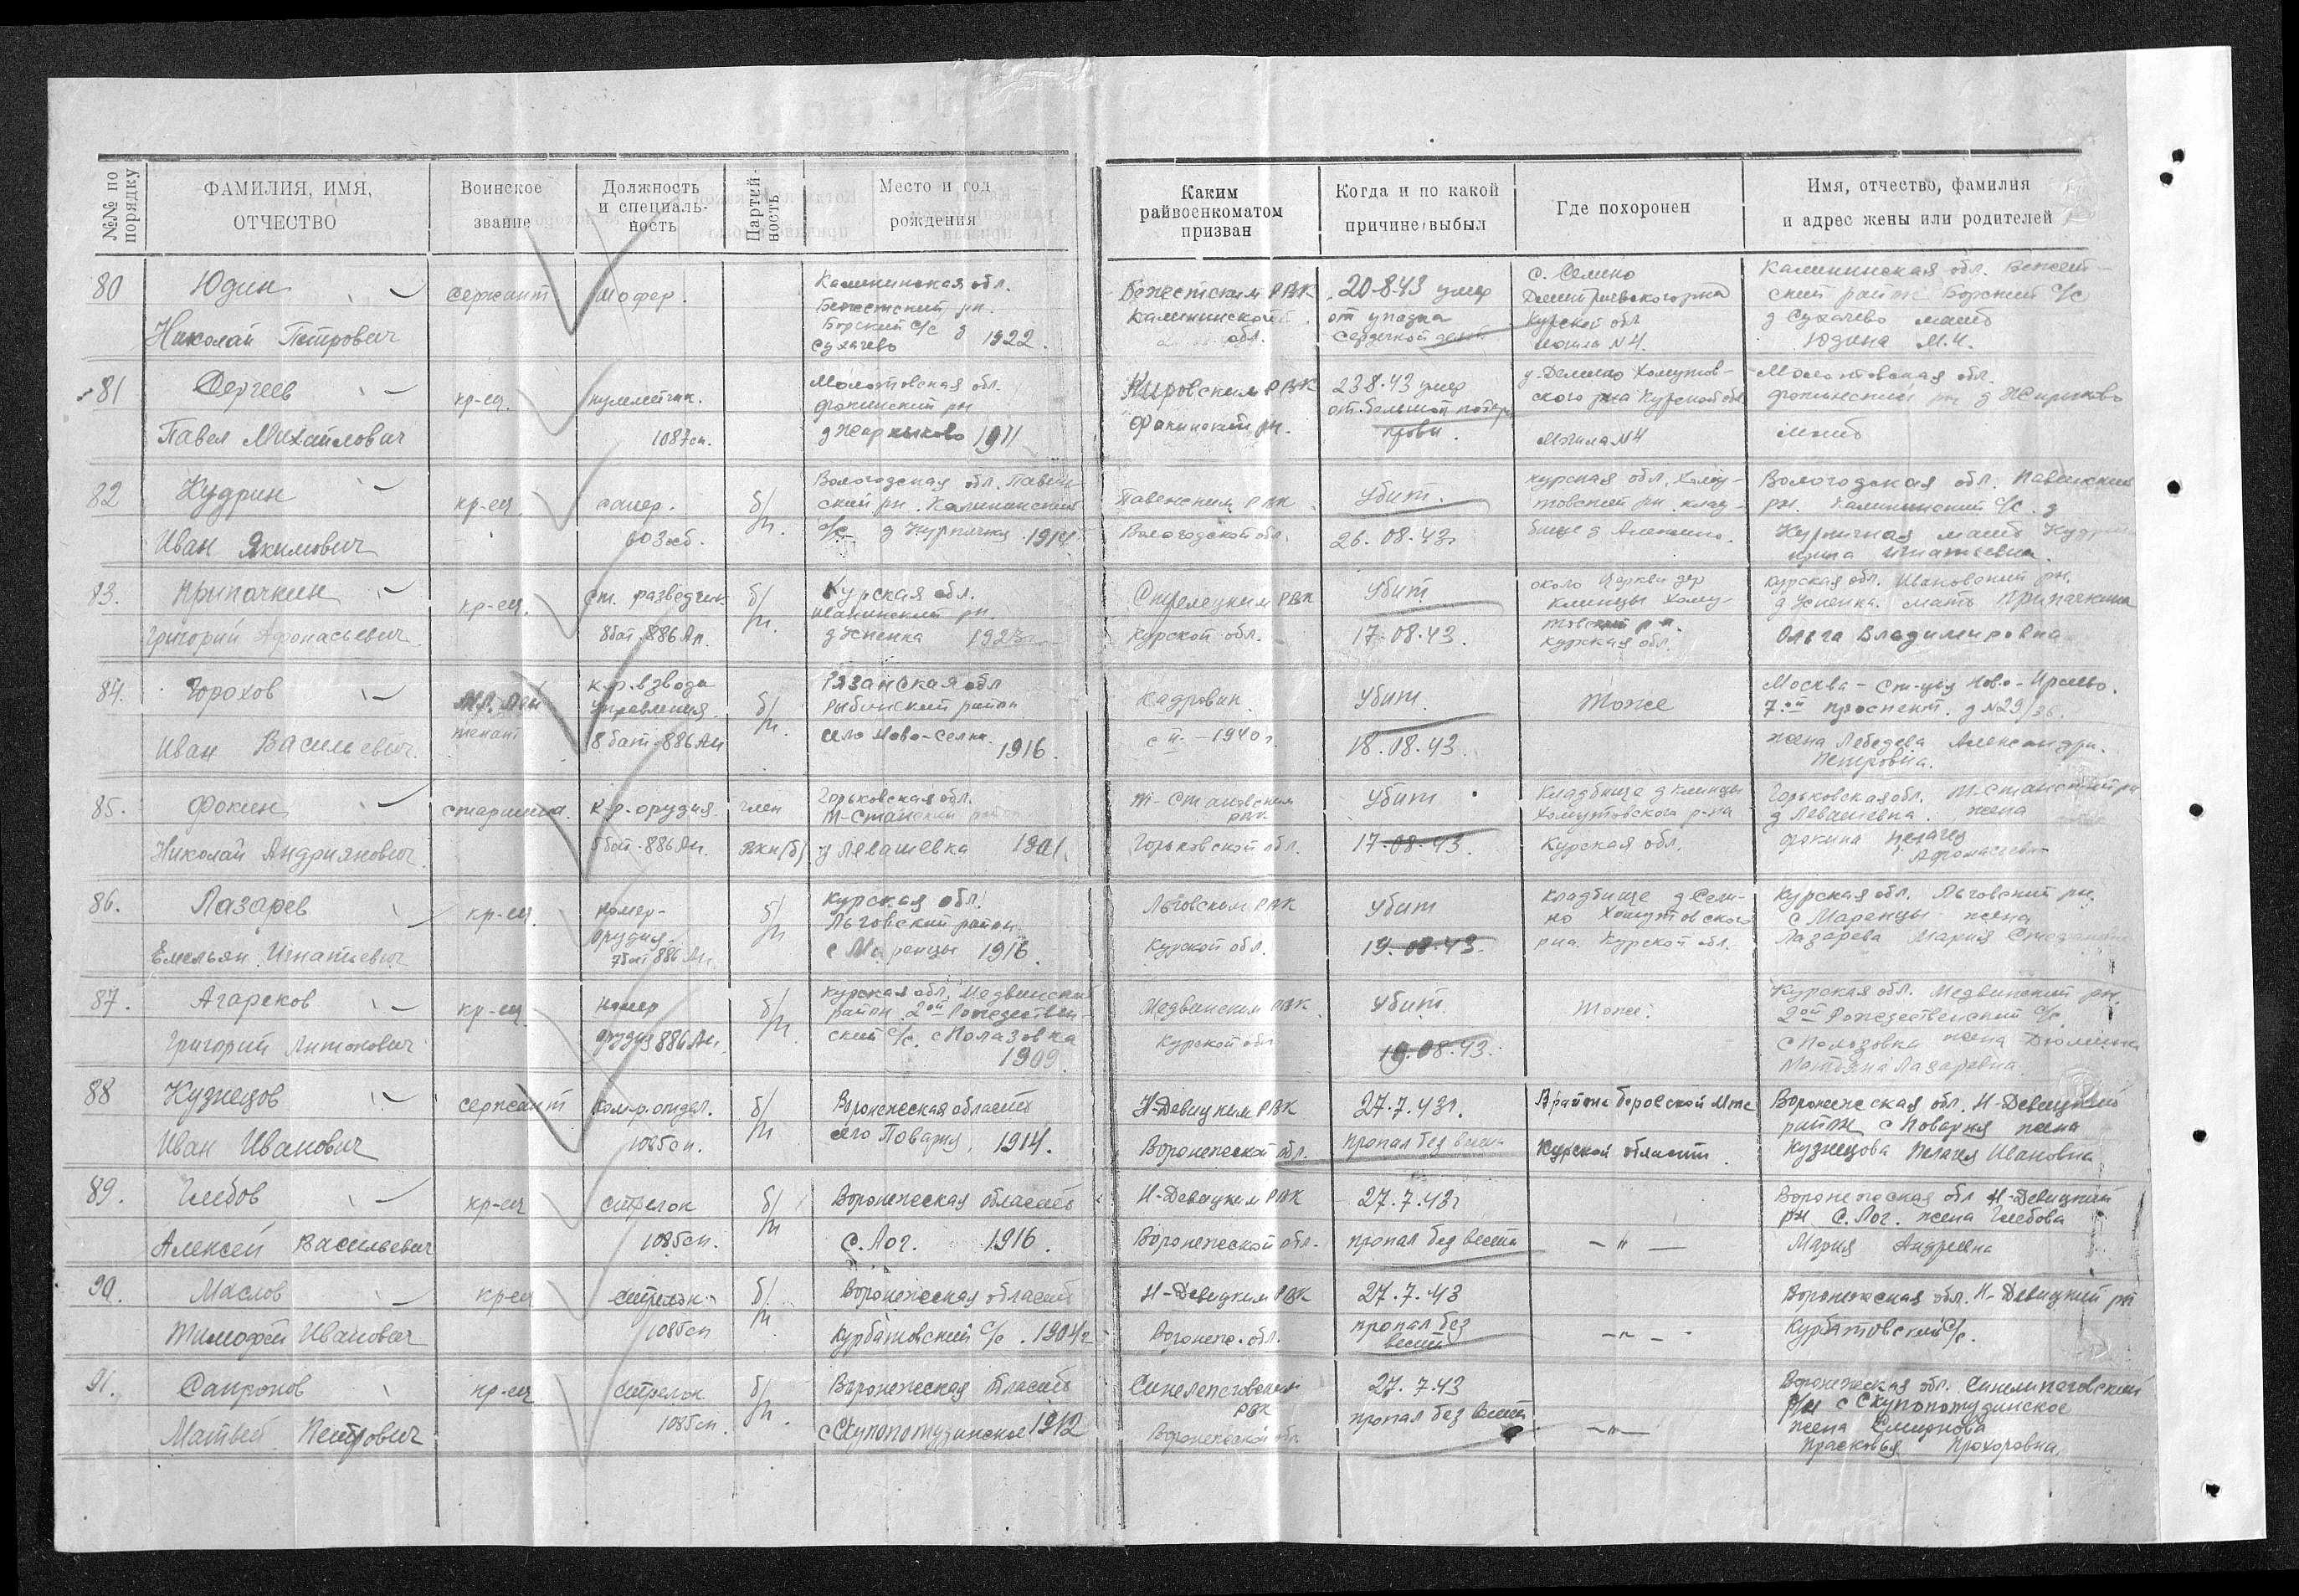 №№ по порядку
ФАМИЛИЯ, ИМЯ, ОТЧЕСТВО
Воинское звание
Должность и специаль-ность
Партий-ность
Место и год рождения
Каким райвоенкоматом призван
Когда и по какой причине выбыл
Где похоронен
Имя, отчество, фамилия и адрес жены или родителей
80
Юдин
Николай Петрович
сержант
шофер.
Калининская обл.
Бежетский рн.
Борский с/с д
Сухачево 1922.
Бежетским РВК
Калининской обл.
20-8-43 умер
от упадка
сердечной деят.
с. Селино
Дмитриевского рна
Курской обл
могила N4.
Калининская обл. Бежет-
ский район Борский с/с
д Сухачево мать
Юдина М.И.
81
Сергеев
Павел Михайлович
кр-ец.
пулеметчик.
1087сп.
Молотовская обл.
Фокинский рн
1911
Кировским РВК
Фокинский рн.
23.8.43 умер
от большой потери
крови.
Хомутов-
ского рна Курской обл
Могила N4
Молотовская обл.
фокинский рн д
мать
82
Кудрин
Иван Якимович
кр-ец.
сапер.
603 сб.
б/п.
Вологодская обл.
ский рн. Калининский
с/с д 1914
РВК
Вологодской обл.
Убит.
26.08.43г
курская обл, Хому-
товский рн, клад-
бище д
Вологодская обл.
рн. Калининский с/с. д
мать
Игнатьевна.
83.
Припачкин
Григорий Афонасьевич
кр-ец.
ст. разведчик
8 бат. 886 Ап.
б/п.
Курская обл.
д Успенка 1923г
Стрелецким РВК
Курской обл.
Убит
17-08-43.
около Церкви дер
Клинцы Хому-
товский р-н.
Курская обл.
курская обл. рн.
д Успенка. мать Припачкина
Ольга Владимировна
84.
Горохов
Иван Васильевич.
Мл. лей
тенант
к-р. взвода
управления.
8 бат. 886 Ап
б/п.
Рязанская обл
Рыбинский район
село Ново-Селки. 1916.
Кадровик.
с 1940г.
Убит.
18.08.43.
Тоже
Москва - ст-ция
7ой проспект. д N29/36.
жена Лебедева Александра.
Петровна.
85.
Фокин
Николай Андриянович.
старшина.
к-р. орудия.
886 Ап.
член
ВКП(б)
Горьковская обл.
д Левашевка 1901.
РВК
Горьковской обл.
Убит
17-08-43.
Кладбище д Клинцы
Хомутовского р-на
Курская обл.
Горьковская обл.
д Левашевка. жена
фокина Пелагея
86.
Лазарев
Емельян Игнатьевич
кр-ец.
номер-
орудия.
7 бат 886 Ап.
б/п
Курская обл.
Льговский район.
с Марицы 1916.
Льговским РВК
Курской обл.
Убит
19-08-43.
Кладбище д Сели-
но Хомутовского
рна. Курской обл.
Курская обл. Льговский рн.
с Марицы жена
Лазарева Мария
87.
Агарков
Григорий Антонович
кр-ец
номер
орудия 886 Ап.
б/п.
Курская обл, Медвинский
район 2ой Рождествен-
ский с/с. с Полазовка
1909.
Медвинским РВК
Курской обл
Убит.
19.08.43.
Тоже.
Курская обл. Медвинский рн.
2ой Рождественский с/с
с Полазовка жена
Лазаревна.
88
Кузнецов
Иван Иванович
сержант
ком-р. отдел.
1085сп.
б/п
Воронежская область
село Поварня, 1914.
Н-Девицким РВК
Воронежской обл.
27.7.43г.
пропал без вести
В районе Боровской Мтс
Курской области.
Воронежская обл. Н-Девицкий
район с Поварня жена
Кузнецова Пелагея Ивановна
89.
Глебов
Алексей Васильевич
кр-ец
стрелок
1085сп.
б/п
Воронежская область
с. Лог. 1916.
Н-Девицким РВК
Воронежской обл.
27.7.43г
пропал без вести
— " —
Воронежская обл Н-Девицкий
рн с. Лог. жена Глебова
Мария Андреевна
90.
Маслов
Тимофей Иванович
кр-ец
стрелок
1085сп
б/п
Воронежская область
Курбатовский с/с. 1904г
Н-Девицким РВК
Воронеж. обл.
27.7.43
пропал без
вести
— " —
Воронежская обл. Н-Девицкий рн
Курбатовский с/с.
91.
Сапронов
Матвей Петрович
кр-ец
стрелок
1085сп.
б/п.
Воронежская область
1912
РВК
Воронежской обл
27.7.43
пропал без вести
— " —
Воронежская обл.
жена Смирнова
Прасковья Прохоровна.